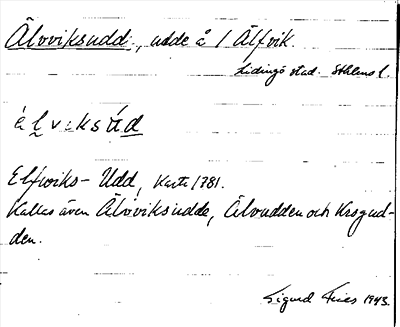 Älvviksudd, udde å 1 Älfvik.
Lidingö stad. Sthlms l.
è l v: k s ú d
Elfwiks-Udd, Karta 1781.
Kallas även Älvviksudde, Älvudden och Krogud-
den.
Sigurd Fries 1943.